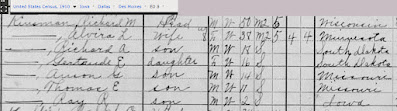 United States Census, 1910 Iowa Dallas Des Moines ED 8
Kinsman Richard M Head M W 50 M2 5 Wisconsin
—, Alvira L Wife F W 38 M2 5 4 4 Minnesota
—, Richard A son M W 18 S South Dakota
—, Gertrude E daughter F W 16 S South Dakota
—, Anson G son M W 14 S Missouri
—, Thomas E son M W 11 S Missouri
—, Ray son M W 2 S Iowa